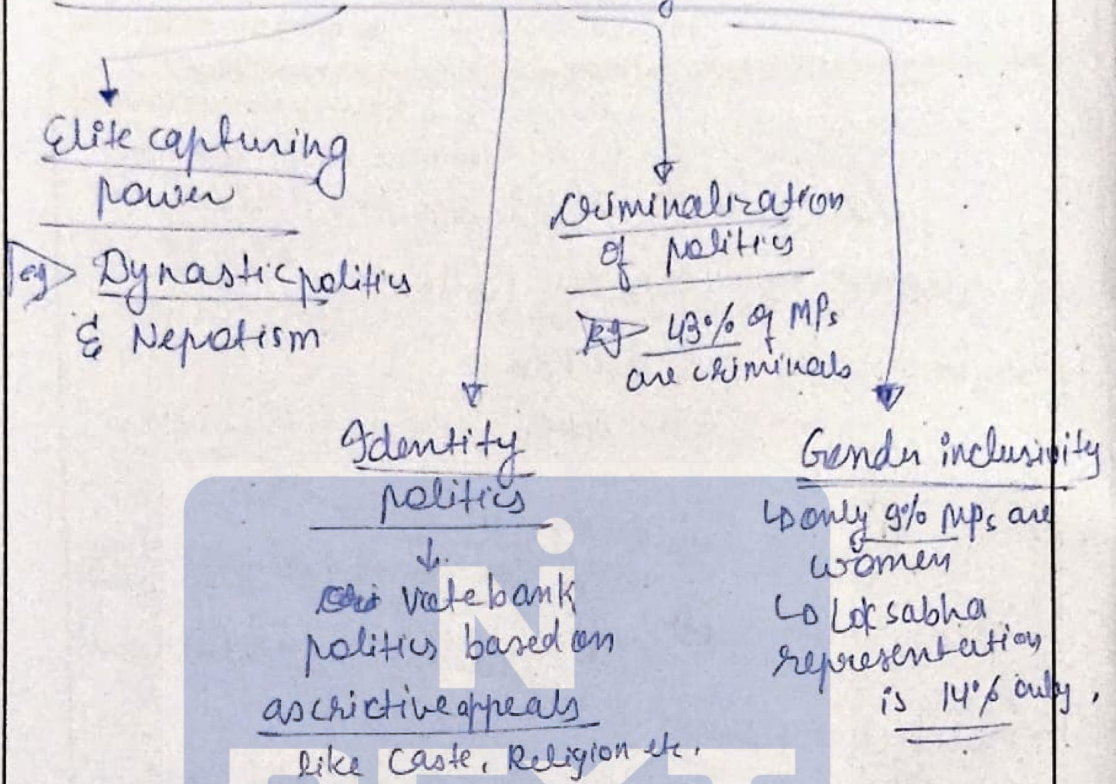 Elite capturing
power
eg Dynastic politics
& Nepotism
Criminalization
of politics
Eg 43% of MPs
are criminals
Identity
politics
↓
votebank
politics based on
ascrictive appeals
like Caste, Religion etc.
Gender inclusivity
↳ only 9% MPs are
women
↳ Lok sabha
representation
is 14% only.